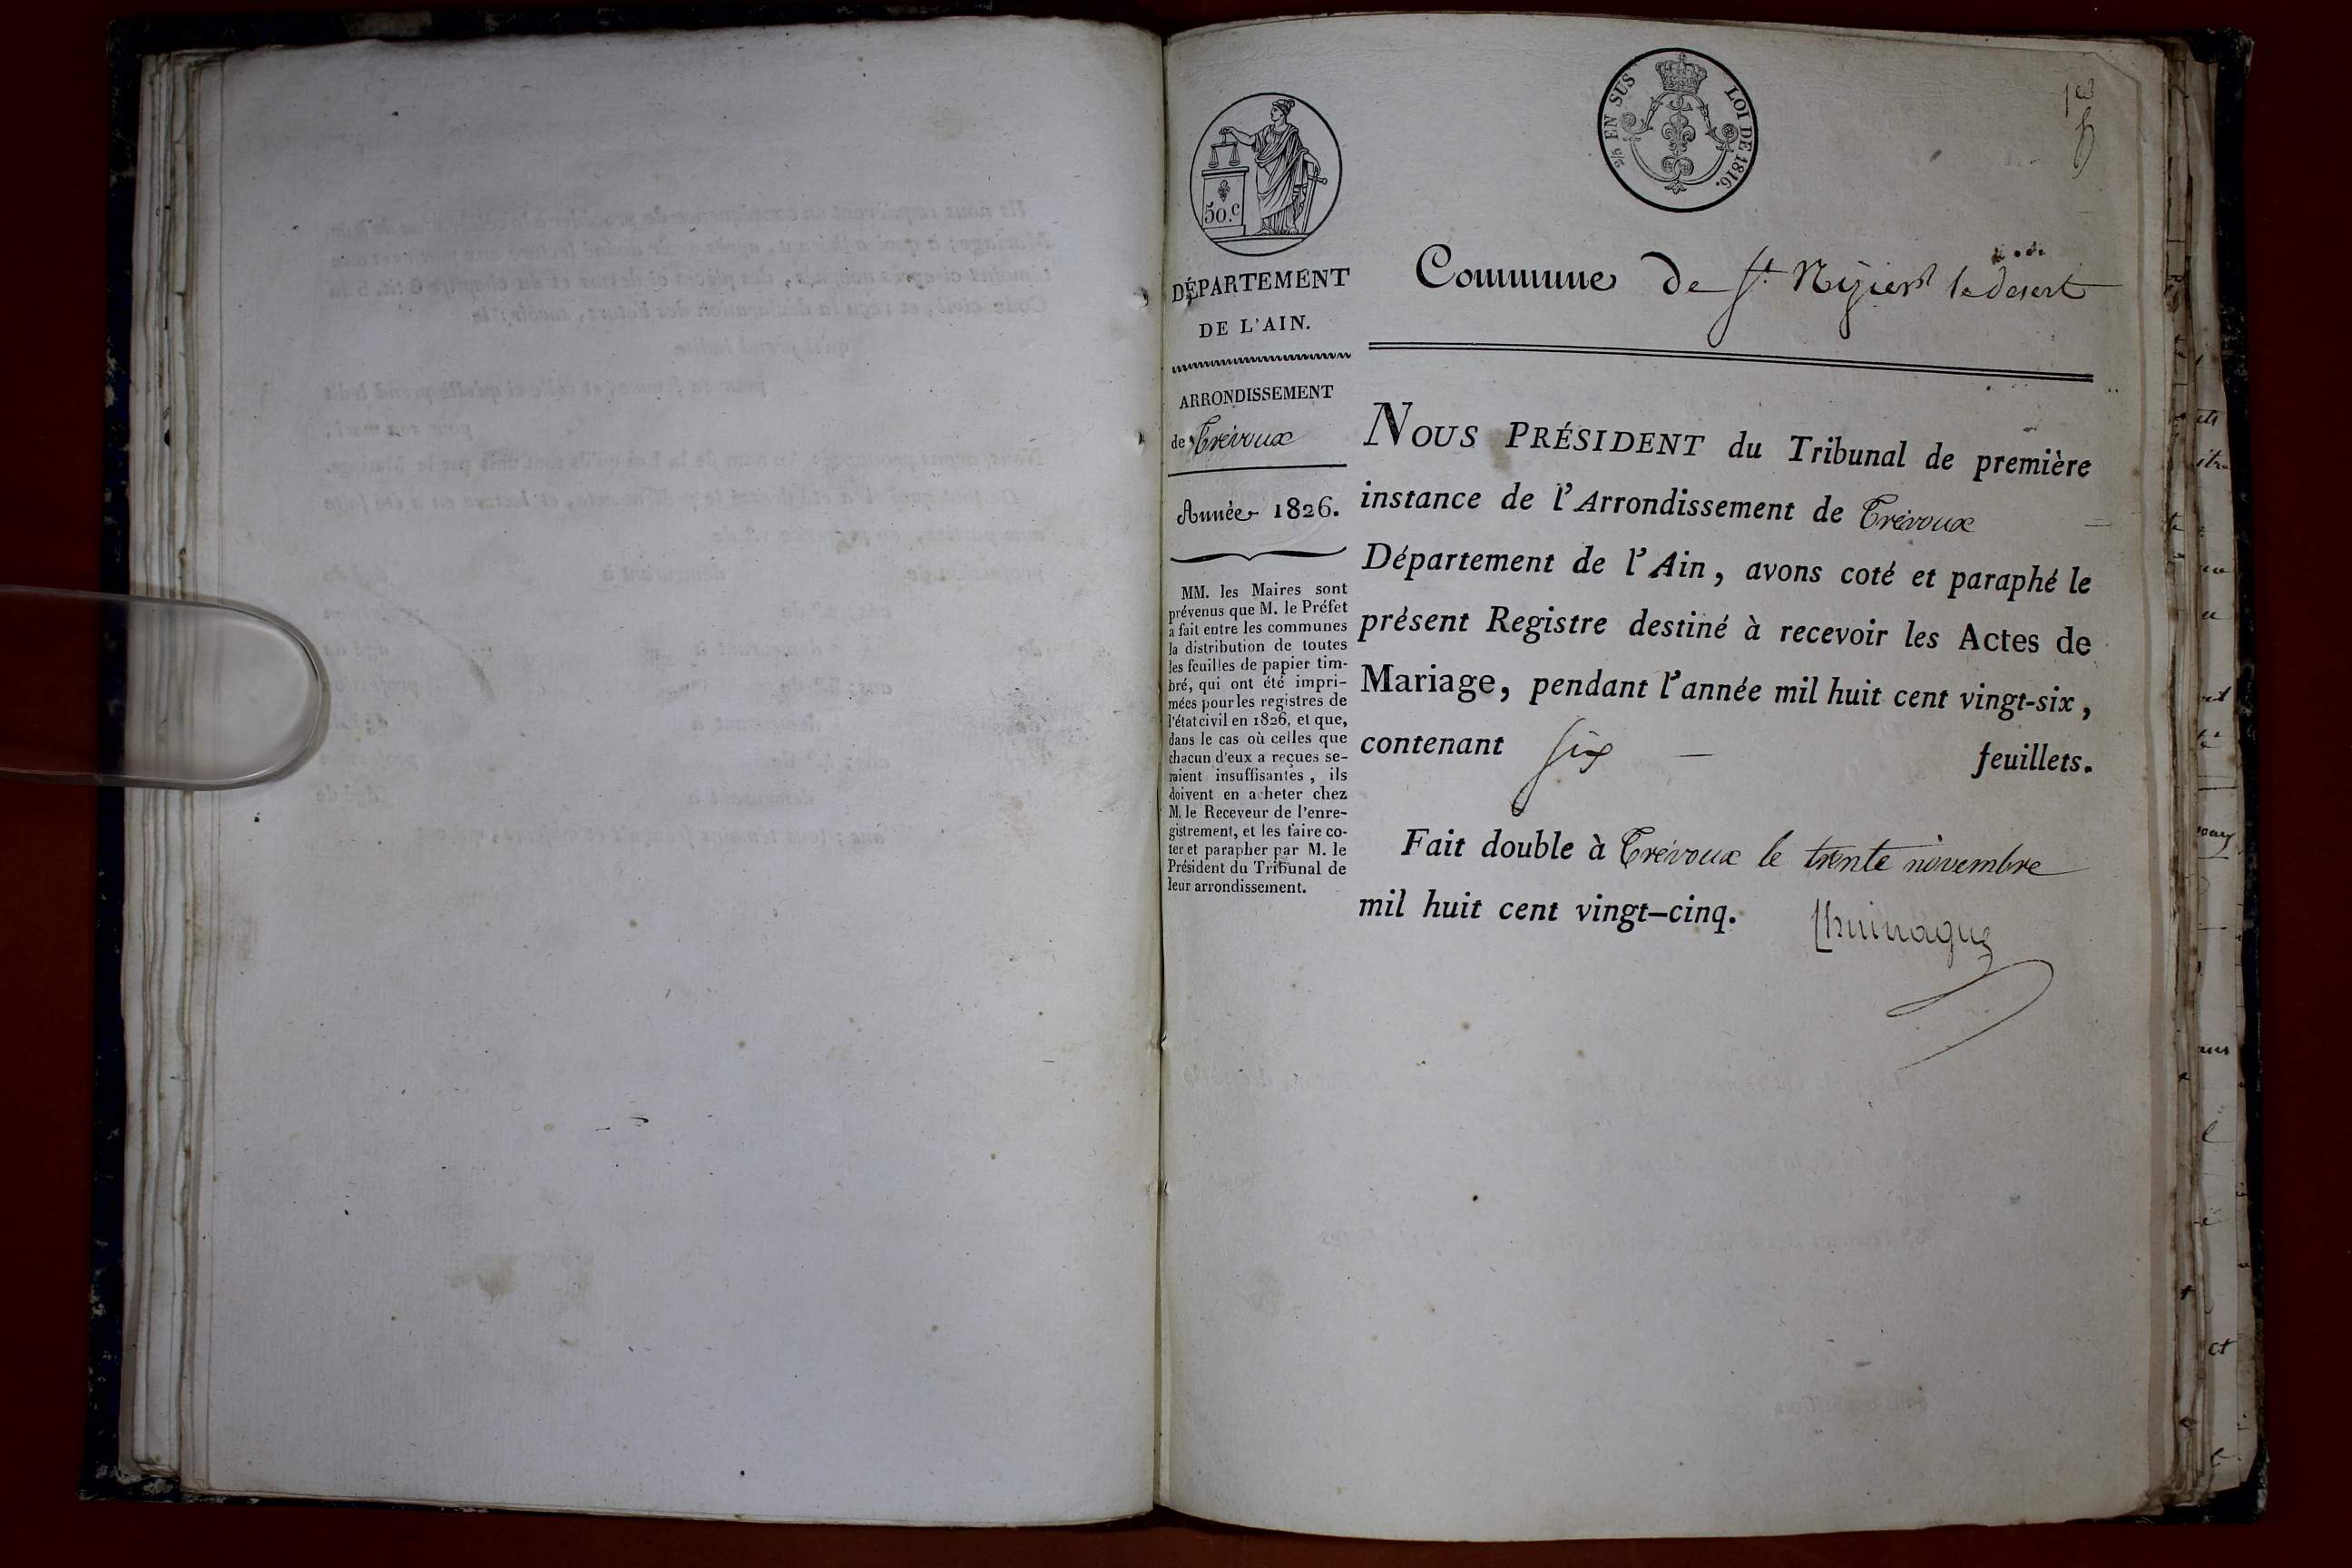 50.c
2/5 EN SUS LOI DE 1816.
1er
DÉPARTEMENT
DE L'AIN.
ARRONDISSEMENT
de Trévoux
Année 1826.
MM. les Maires sont
prévenus que M. le Préfet
a fait entre les communes
la distribution de toutes
les feuilles de papier tim-
bré, qui ont été impri-
mées pour les registres de
l'état civil en 1826, et que,
dans le cas où celles que
chacun d'eux a reçues se-
raient insuffisantes, ils
doivent en acheter chez
M. le Receveur de l'enre-
gistrement, et les faire co-
ter et parapher par M. le
Président du Tribunal de
leur arrondissement.
Commune de St. Nizier le desert
NOUS PRÉSIDENT du Tribunal de première
instance de l'Arrondissement de Trévoux
Département de l'Ain, avons coté et paraphé le
présent Registre destiné à recevoir les Actes de
Mariage, pendant l'année mil huit cent vingt-six,
contenant six feuillets.
Fait double à Trévoux le trente novembre
mil huit cent vingt-cinq.